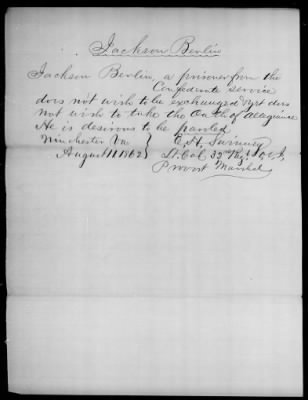 Jackson Berlin
Jackson Berlin, a prisoner from the
Confederate service
does not wish to be exchanged & yet does
not wish to take the Oath of Allegiance
He is desirous to be paroled
Winchester Va
August 11 1862
Lt Col 32nd Regt O V I
Provost Marshal